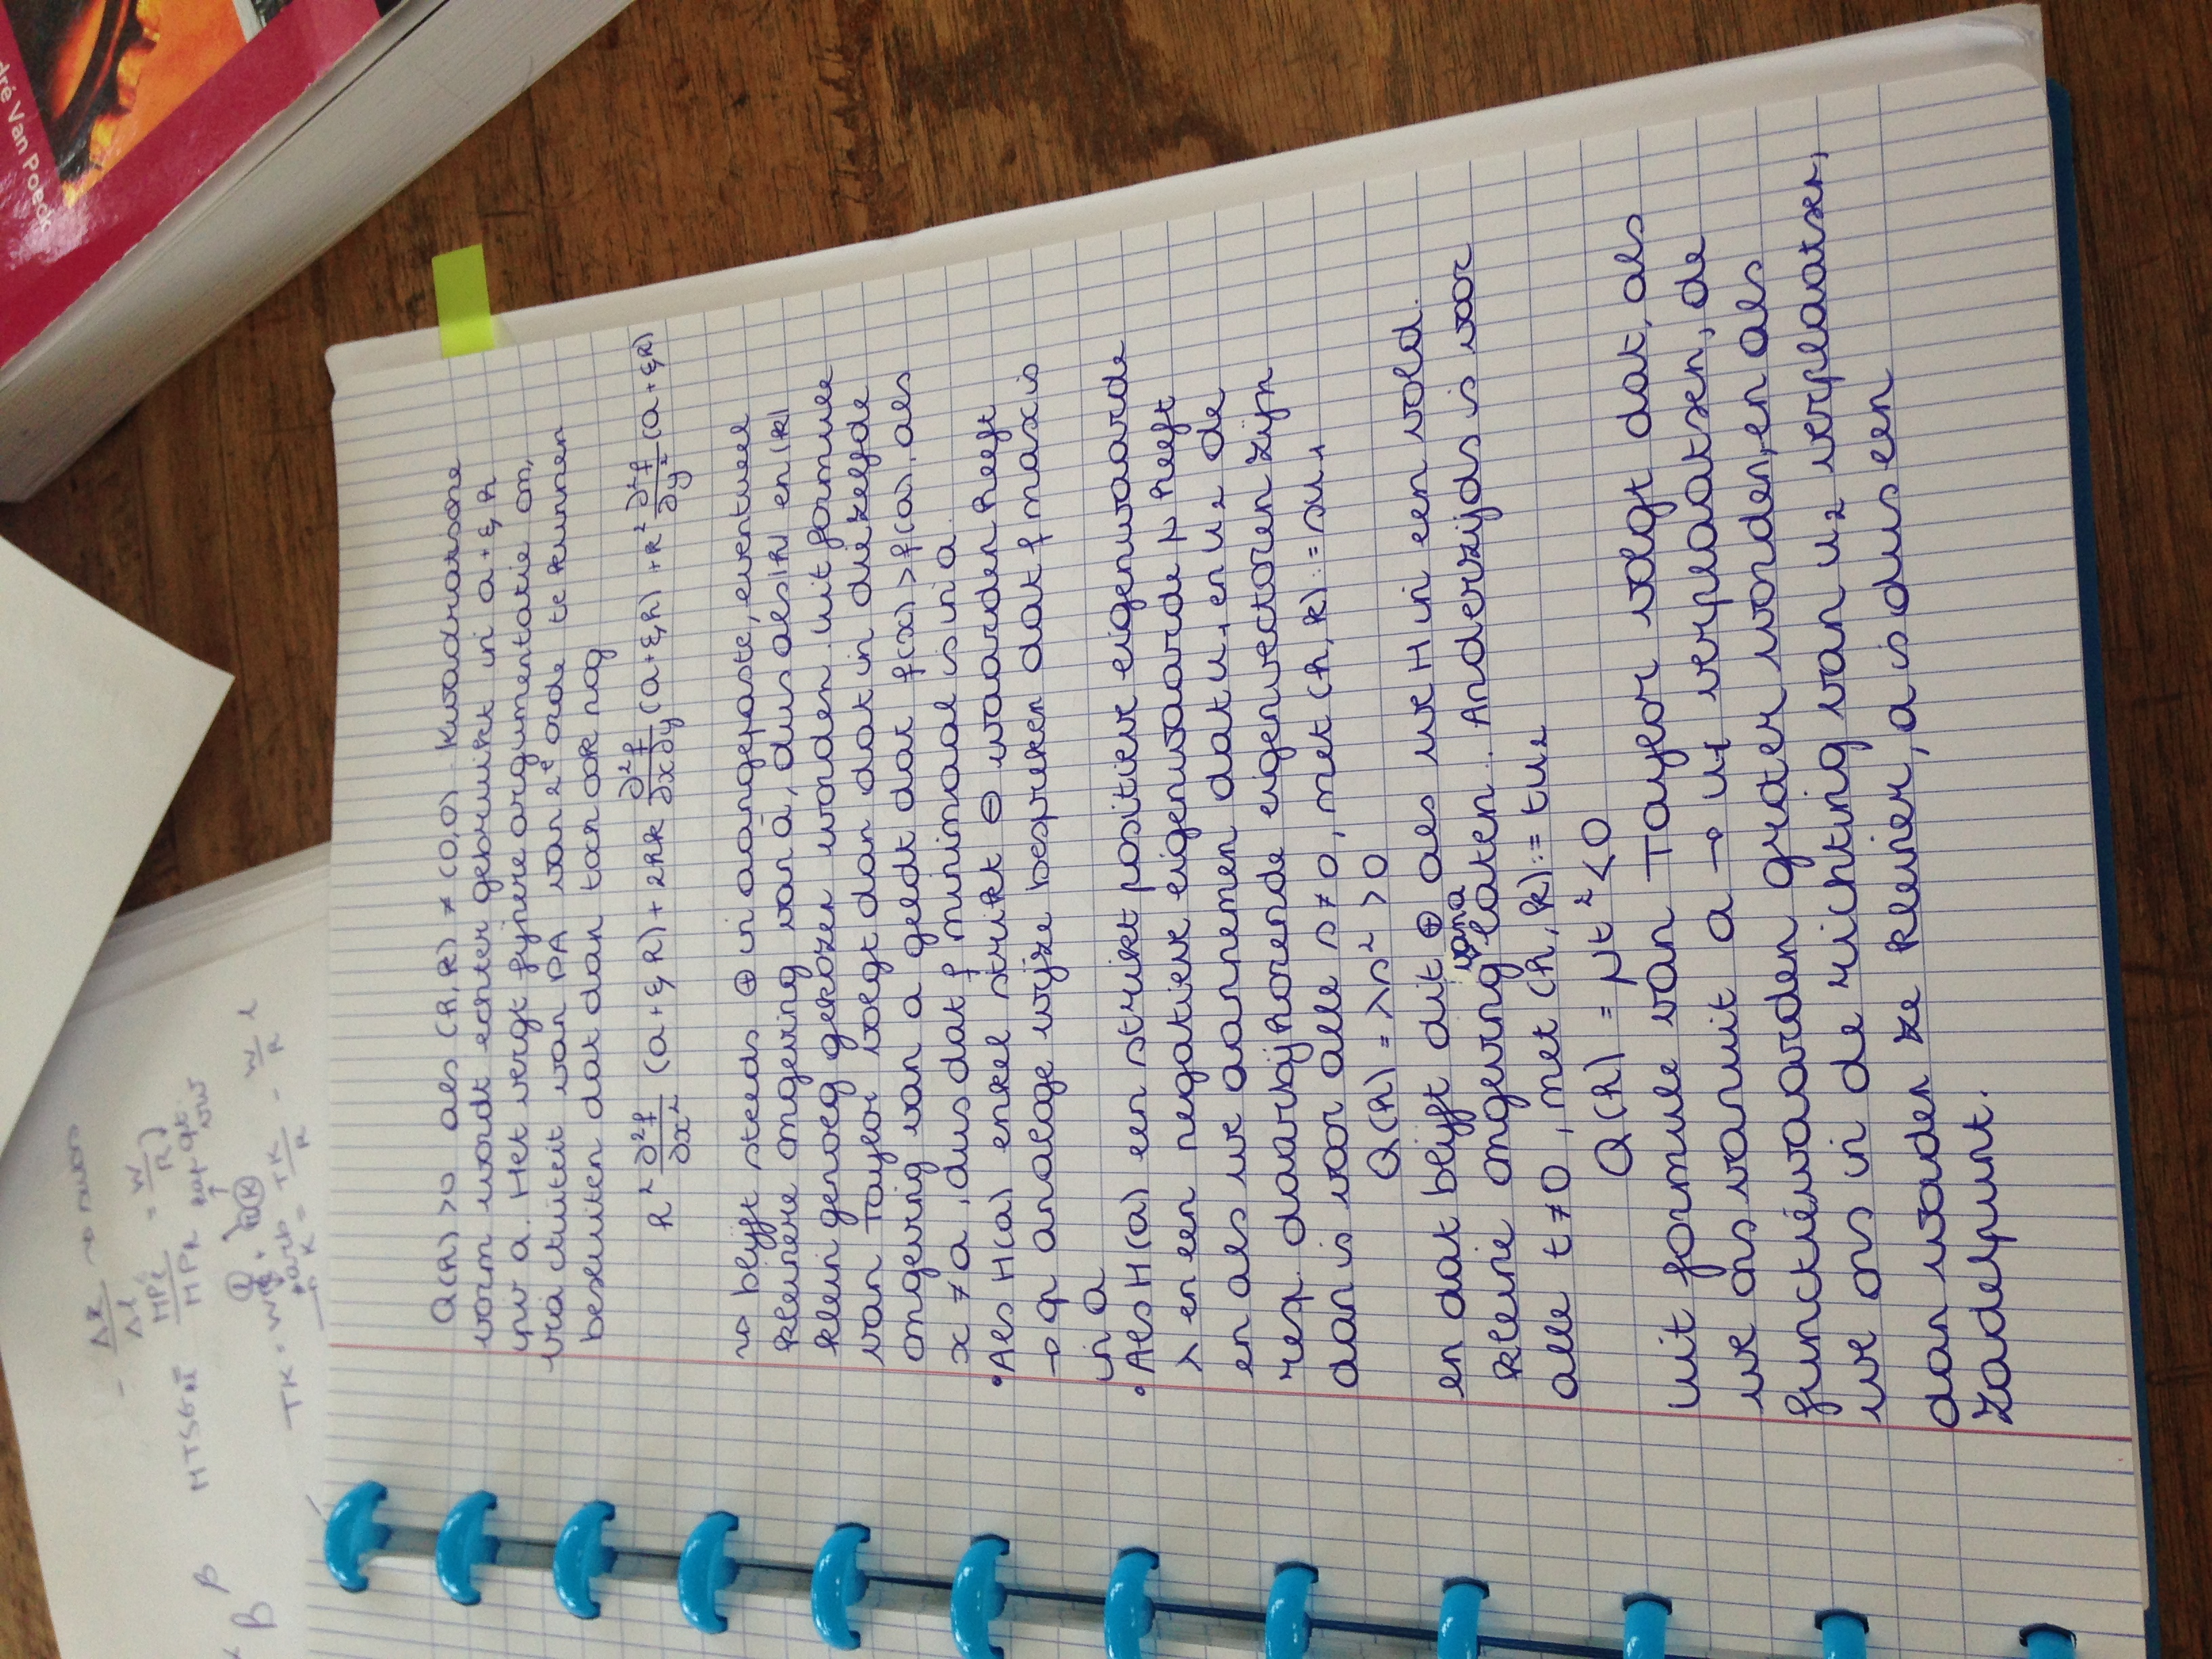 Q(h) > 0 als (h,k) ≠ (0,0). Kwadratische
vorm wordt echter gebruikt in a + ξh
ipv a. Het vergt fijnere argumentatie om,
via ctuïteit van PA van 2e orde te kunnen
besluiten dat dan toch ook nog
h² ∂²f/∂x² (a+ξh) + 2hk ∂²f/∂x∂y (a+ξh) + k² ∂²f/∂y² (a+ξh)
↝ blijft steeds ⊕ in aangepaste, eventueel
kleinere omgeving van a, dus als |h| en |k|
klein genoeg gekozen worden. Uit formule
van Taylor volgt dan dat in diezelfde
omgeving van a geldt dat f(x) > f(a), als
x ≠ a, dus dat f minimaal is in a.
• Als H(a) enkel strikt ⊖ waarden heeft
→ op analoge wijze bespreken dat f max is
in a
• Als H(a) een strikt positieve eigenwaarde
λ en een negatieve eigenwaarde μ heeft
en als we aannemen dat u₁ en u₂ de
resp. daarbijhorende eigenvectoren zijn
dan is voor alle s ≠ 0, met (h,k) := su₁
Q(h) = λs² > 0
en dat blijft dit ⊕ als we H in een vold.
kleine omgeving van a laten. Anderzijds is voor
alle t ≠ 0, met (h,k) := tu₂
Q(h) = μt² < 0
Uit formule van Taylor volgt dat, als
we ons vanuit a → u₁ verplaatsen, de
functiewaarden groter worden, en als
we ons in de richting van u₂ verplaatsen,
dan worden ze kleiner, a is dus een
zadelpunt.
dré Van Poeck